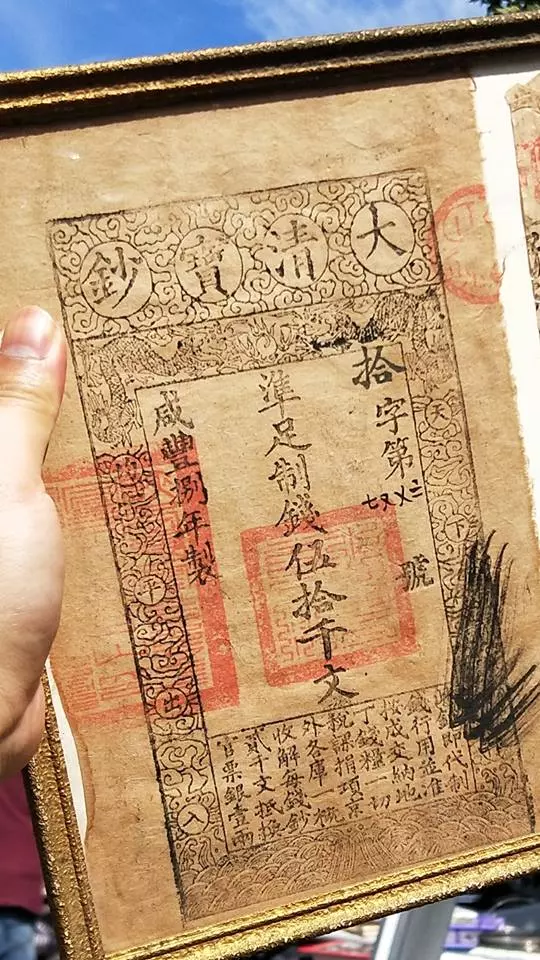 大清寶鈔
天下
拾字第
號
準足制錢伍拾千文
咸豐捌年製
均平出入
鈔即代制
錢行用並准
按成交納地
丁錢糧一切
稅課捐項京
外各庫一概
收解每錢鈔
貳千文抵換
官票銀壹兩